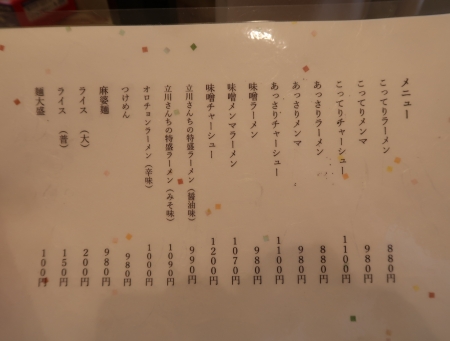 メニュー
こってりラーメン 880円
こってりメンマ 980円
こってりチャーシュー 1100円
あっさりラーメン 880円
あっさりメンマ 980円
あっさりチャーシュー 1100円
味噌ラーメン 980円
味噌メンマラーメン 1070円
味噌チャーシュー 1200円
立川さんちの特盛ラーメン(醤油味) 990円
立川さんちの特盛ラーメン(みそ味) 1090円
オロチョンラーメン(辛味) 1000円
つけめん 980円
麻婆麺 980円
ライス (大) 200円
ライス (普) 150円
麺大盛 100円